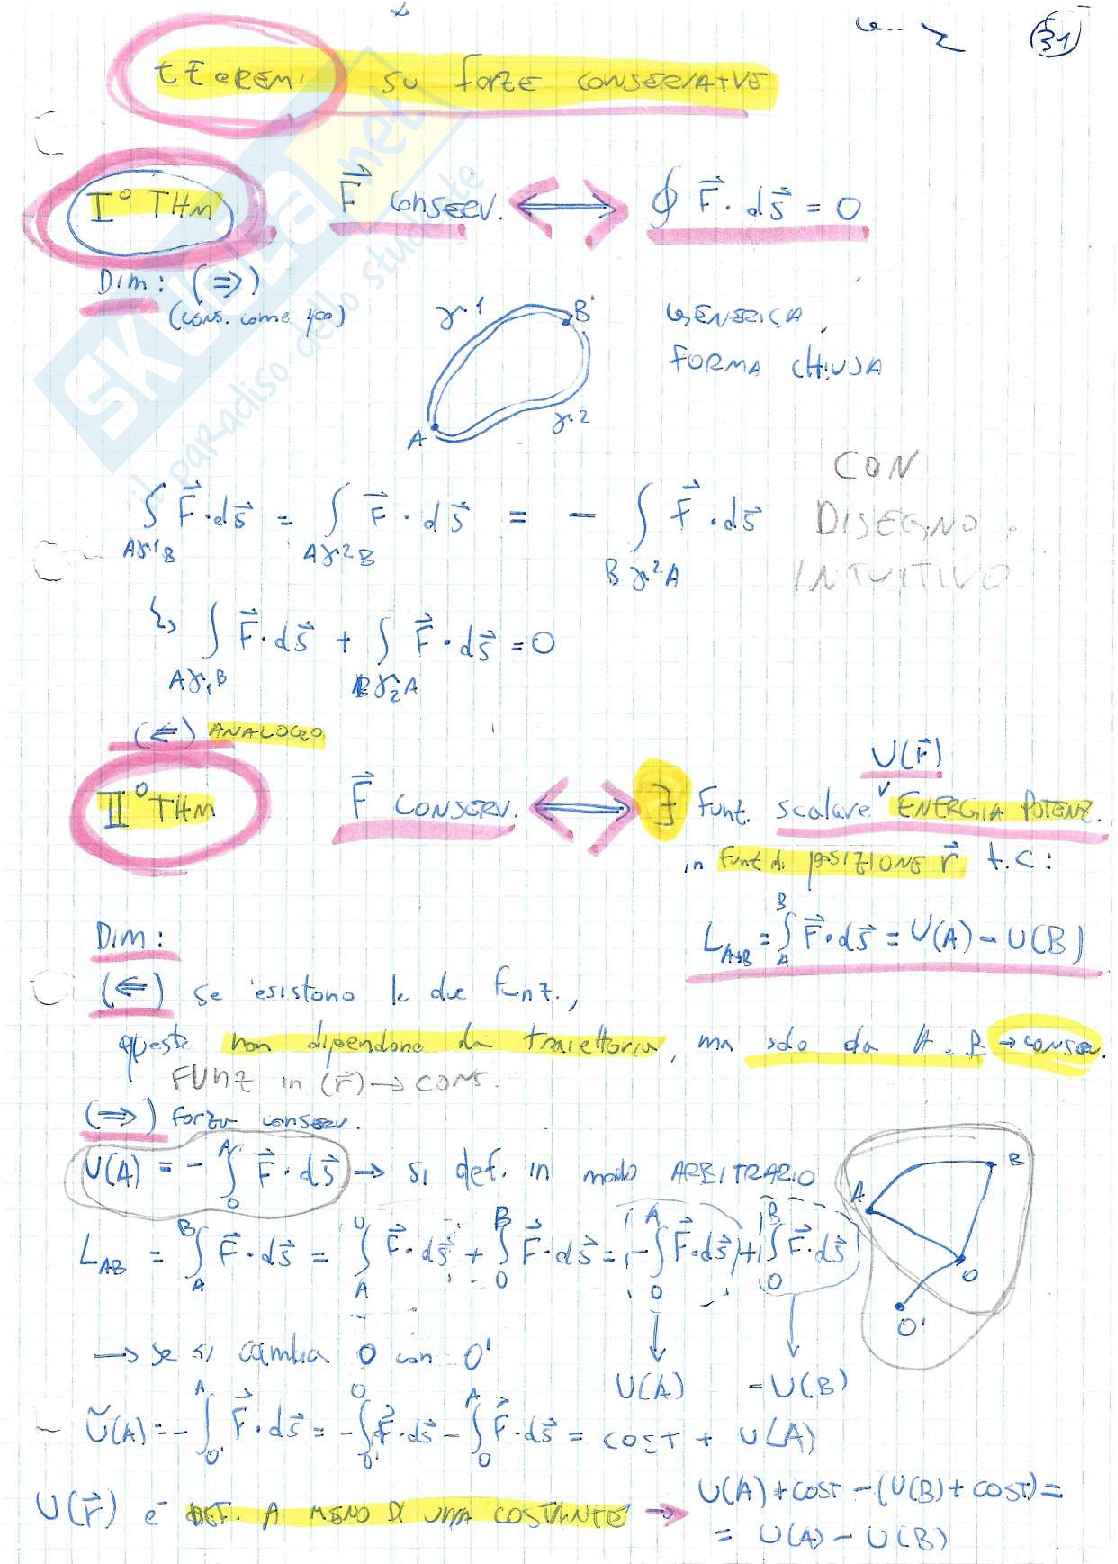 31
TEOREMI SU FORZE CONSERVATIVE
I° THM F⃗ CONSERV. ⟷ ∮ F⃗ · ds⃗ = 0
Dim: (⇒)
(cons. come ipo)
γ1 B
GENERICA
FORMA CHIUSA
A γ2
CON
DISEGNO
INTUITIVO
∫ F⃗ · ds⃗ = ∫ F⃗ · ds⃗ = - ∫ F⃗ · ds⃗
Aγ1B Aγ2B Bγ2A
↳ ∫ F⃗ · ds⃗ + ∫ F⃗ · ds⃗ = 0
Aγ1B Bγ2A
(⇐) ANALOGO
U(r⃗)
II° THM F⃗ CONSERV. ⟷ ∃ Funz. scalare ENERGIA POTENZ.
in funz di POSIZIONE r⃗ t.c:
L_{A→B} = ∫_A^B F⃗ · ds⃗ = U(A) - U(B)
Dim:
(⇐) se esistono le due funz.,
queste non dipendono da traiettoria, ma solo da A, B → CONSERV.
FUNZ in (r⃗) → CONS.
(⇒) forza conserv.
U(A) = - ∫_0^A F⃗ · ds⃗ → si def. in modo ARBITRARIO
A B O O'
L_{AB} = ∫_A^B F⃗ · ds⃗ = ∫_A^0 F⃗ · ds⃗ + ∫_0^B F⃗ · ds⃗ = - ∫_0^A F⃗ · ds⃗ + ∫_0^B F⃗ · ds⃗
→ se si cambia O con O'
U(A) = U(B)
Ũ(A) = - ∫_{0'}^A F⃗ · ds⃗ = - ∫_{0'}^0 F⃗ · ds⃗ - ∫_0^A F⃗ · ds⃗ = COST + U(A)
U(r⃗) è DEF. A MENO DI UNA COSTANTE → U(A) + COST - (U(B) + COST) =
= U(A) - U(B)
il paradiso dello studente
SKUOLA.net